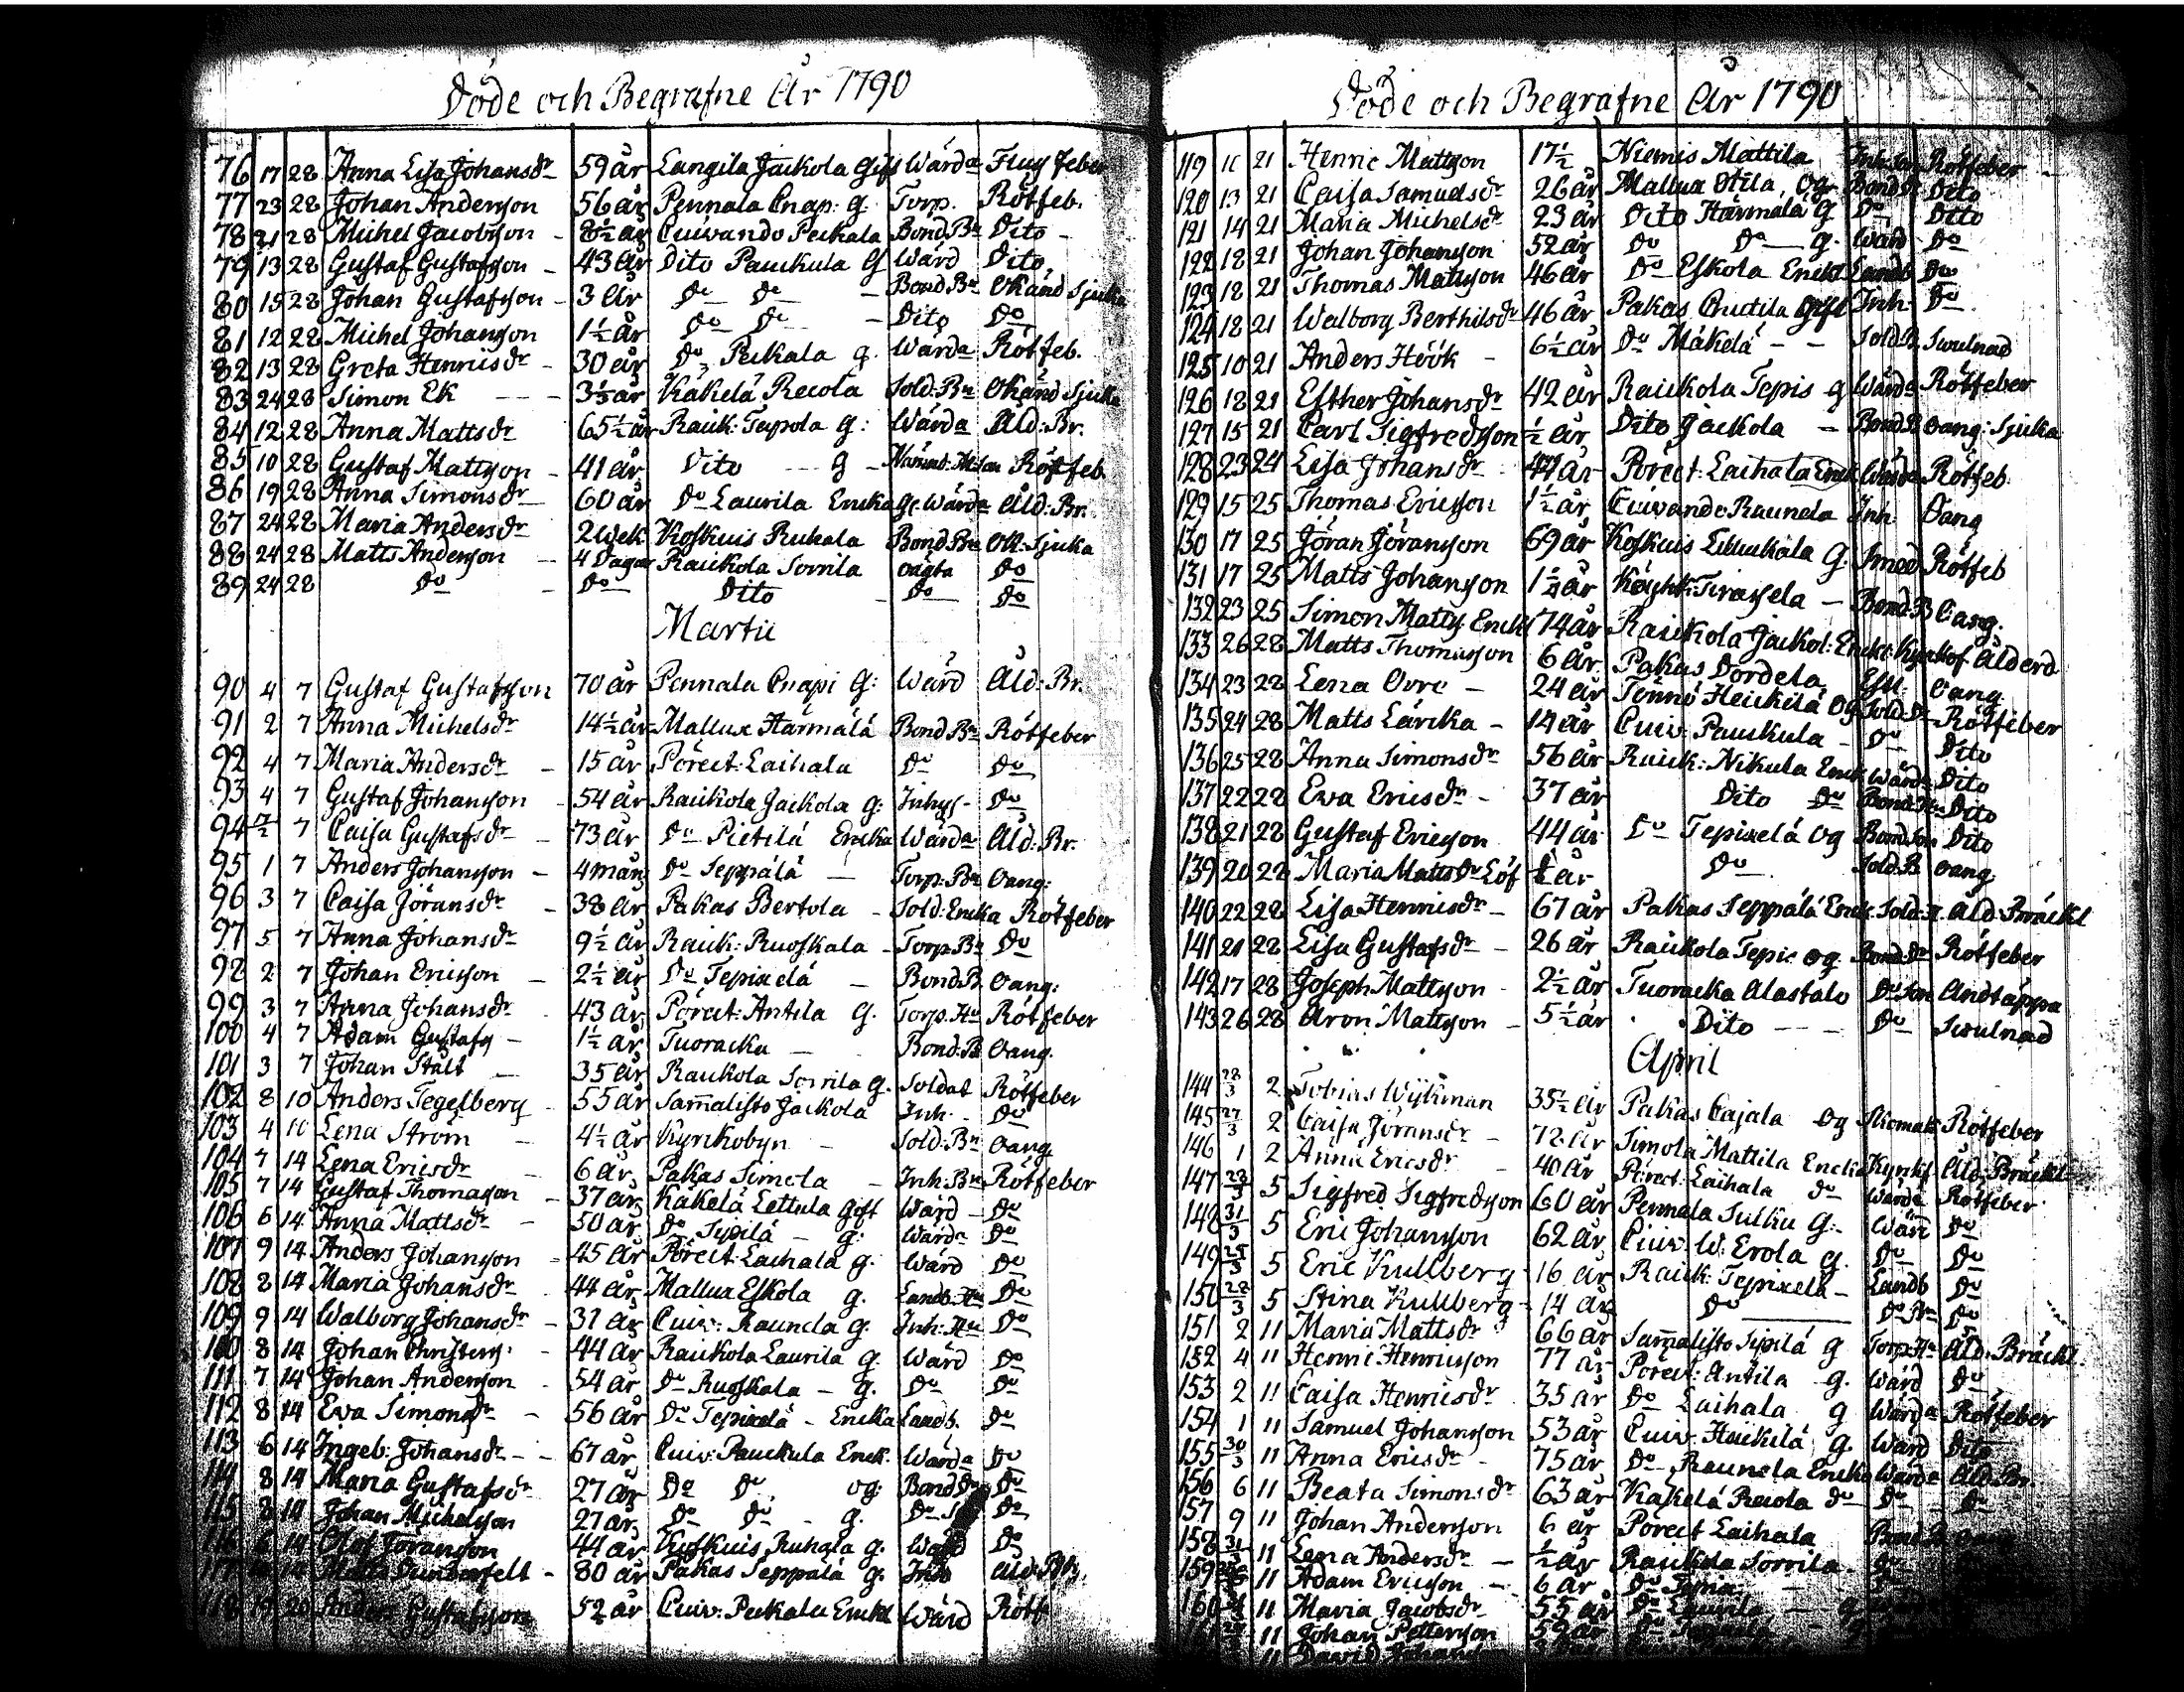 Döde och Begrafne År 1790
76 17 28 Anna Lisa Johansdr 59 år Langila Jaikola Gift Wärda Flug feber
77 23 28 Johan Andersson 56 år Pennala Cnap: g. Torp. Rötfeb.
78 21 28 Michel Jacobsson - 8½ år Cuivando Peckala Bond.Bn Dito -
79 13 28 Gustaf Gustafsson - 43 år Dito Pauckula G Wärd Dito
80 15 28 Johan Gustafsson - 3 år Do Do - Bond Bn Okänd Sjuka
81 12 28 Michel Johansson 1½ år Do Do - Dito Do
82 13 28 Greta Henricsdr - 30 år Do Peckala g. Wärda Rötfeb.
83 24 28 Simon Ek - - - 3½ år Käkelä Recola Sold: Bn Okänd Sjuka
84 12 28 Anna Mattsdr 65½ år Raick: Tepola g: Wärda Åld: Br.
85 10 28 Gustaf Mattsson - 41 år Dito - - g - Rötfeb
86 19 28 Anna Simonsdr 60 år Do Laurila Encka Wärda Åld: Br.
87 24 28 Maria Andersdr 2 Wek Koskuis Ruhala Bond Bn Ok: Sjuka
88 24 28 Matts Andersson - 4 Dagar Raickola Sorrila oägta Do
89 24 28 Do - Do Dito - Do Do
Martii
90 4 7 Gustaf Gustafsson 70 år Pennala Cnapi G: Wärd Åld: Br.
91 2 7 Anna Michelsdr 14½ år Mallux Härmälä Bond Bn Rötfeber
92 4 7 Maria Andersdr - 15 år Poreet: Laihala Do Do
93 4 7 Gustaf Johansson - 54 år Raickola Jackola g: Inhys - Do
94 7 Caisa Gustafsdr - 73 år Do Pietilä Encka Wärda Åld: Br.
95 1 7 Anders Johansson - 4 mån Do Seppälä - Torp: Bn Oang:
96 3 7 Caisa Jöransdr - 38 år Pakas Bertola - Sold: Encka Rötfeber
97 5 7 Anna Johansdr 9½ år Raick: Ruoskala - Torp Bn Do
98 2 7 Johan Ericsson - 2½ år Do Tepixelä - Bond.B. Oang:
99 3 7 Anna Johansdr 43 år Poreet: Antila G. Torp. Hu Rötfeber
100 4 7 Adam Gustafs - 1½ år Tuoracka - Bond: B Oang.
101 3 7 Johan Stålt - 35 år Raickola Sorrila g. Soldat Rötfeber
102 8 10 Anders Tegelberg 55 år Sam̄alisto Jackola Inh. - Do
103 4 10 Lena Ström - 4½ år Kyrkobyn - Sold: Bn oang.
104 7 14 Lena Ericsdr - 6 år Pakas Simola - Inh: Bn Rötfeber
105 7 14 Gustaf Thomasson - 37 år Käkelä Lettula Gift Wärd - Do
106 6 14 Anna Mattsdr - 50 år Do Sipilä - g: Wärda Do
107 9 14 Anders Johansson - 45 år Poreet: Laihala g. Wärd Do
108 8 14 Maria Johansdr 44 år Mallux Eskola g. Landb: Hu Do
109 9 14 Walborg Johansdr - 37 år Cuiv: Raunela g. Inh: Hu Do
110 8 14 Johan Christers: - 44 år Raickola Laurila g. Wärd Do
111 7 14 Johan Andersson - 54 år Do Ruoskala - g. Do Do
112 8 14 Eva Simonsdr - 56 år Do Tepixelä - Encka Landb. Do
113 6 14 Ingeb: Johansdr - - 67 år Cuiv: Pauckula Enck. Wärda Do
114 8 14 Maria Gustafsdr 27 år Do Do og. Bond Dr Do
115 8 14 Johan Michelsson 27 år Do Do - g. Do Do
116 6 14 Olof Göransson 44 år Koskuis Ruhala g. Wärd Do
117 14 Matts Dunderfelt - 80 år Pakas Seppälä g. Inh
118 20 Anders Gustafsson 52 år Cuiv: Peckala Enckl Wärd Rötf
Döde och Begrafne År 1790
119 11 21 Henric Mattsson 17½ Niemis Mattila Rötfeber
120 13 21 Caisa Samuelsdr 26 år Mallux Otila, Og. Bond Dr Dito
121 14 21 Maria Michelsdr 23 år Dito Härmälä G Do Dito
122 18 21 Johan Johansson 52 år Do Do g. Wärd Do
123 18 21 Thomas Mattsson 46 år Do Eskola Enckl Landb Do
124 18 21 Walborg Berthilsdr 46 år Pakas Gift Inh: Do
125 10 21 Anders Höök - 6½ år Do Mäkelä - - Sold: B. Swulnad
126 18 21 Esther Johansdr 42 år Raickola Tepis g Wärda Rötfeber
127 15 21 Carl Sigfredsson ½ år Dito Jackola - Bond.B oang: Sjuka
128 23 24 Lisa Johansdr 44 år Poreet: Laihala Enck Wärda Rötfeb.
129 15 25 Thomas Ericsson 1½ år Cuivando Raunela Inh Oang
130 17 25 Jöran Jöransson 69 år Koskuis G. Smed Rötfeb
131 17 25 Matts Johansson 1¼ år - Bond: B Oang.
132 23 25 Simon Matts. Enckl 74 år Raickola Jackol: Enckl: Ålderd
133 26 28 Matts Thomasson 6 år Pakas Dordela oang
134 23 28 Lena Ovre - 24 år Tennö Heickilä Og Sold: Dr Rötfeber
135 24 28 Matts Lärcka - 14 år Cuiv: Pauckula - Do Dito
136 25 28 Anna Simonsdr 56 år Raick: Nikula Enck Wärda Dito
137 22 28 Eva Ericsdr - 37 år Dito Do Bond: Hu Dito
138 21 28 Gustaf Ericsson 44 år Do Tepixelä Og Bond Son Dito
139 20 28 Maria Mattsdr Löf år Do Sold.B oang
140 22 28 Lisa Henricsdr - 67 år Pakas Seppälä Enck. Sold: H. Åld: Bräckl
141 21 28 Lisa Gustafsdr - 26 år Raickola Tepis og. Bond: Dr Rötfeber
142 17 28 Joseph Mattsson - 2½ år Tuoracka Alastalo Do Son Andtäppa
143 26 28 Aron Mattsson - 5½ år Dito - - - Do Swulnad
April
144 28/3 2 Tobias Wykman 35½ år Pakas Cajala og Skomak Rötfeber
145 27/3 2 Caisa Jöransdr - 72 år Simola Mattila Encka Kyrkf. Åld: Bräckl
146 1 2 Anna Ericsdr - 40 år Poreet: Laihala Do Wärda Rötfeber
147 28/3 5 Sigfred Sigfredsson 60 år Pennala Sulku G. Wärd Do
148 31/3 5 Eric Johansson 62 år Cuiv: W: Erola g. Do Do
149 25/3 5 Eric Kullberg 16 år Raick: Tepixelä - Landb Do
150 28/3 5 Stina Kullberg 14 år Do Do Bn Do
151 2 11 Maria Mattsdr 66 år Sam̄alisto Sipilä g Torp: Hu Åld: Bräckl.
152 4 11 Henric Henricsson 77 år Poreet: Antila g. Wärd Do
153 2 11 Caisa Henricsdr 35 år Do Laihala g Wärda Rötfeber
154 1 11 Samuel Johansson 53 år Cuiv: Heickilä g. Wärd Dito
155 30/3 11 Anna Ericsdr - 75 år Do Raunela Encka Wärda Åld: Br.
156 6 11 Beata Simonsdr 63 år Käkelä Recola Do Do - Do
157 9 11 Johan Andersson 6 år Poreet Laihala Bond
158 31/3 11 Lena Andersdr - ½ år Raickola Sorrila.
159 11 Adam Ericsson - 6 år Do
160 11 Maria Jacobsdr 55 år Do Laurila
161 11 Johan Pettersson 59 år Do
11 David Johansson